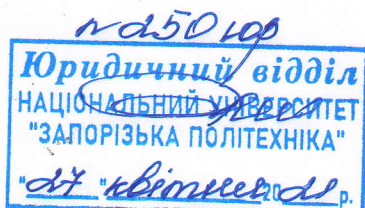 № 250 юр
Юридичний відділ
НАЦІОНАЛЬНИЙ УНІВЕРСИТЕТ
"ЗАПОРІЗЬКА ПОЛІТЕХНІКА"
"27" квітня 2021 р.